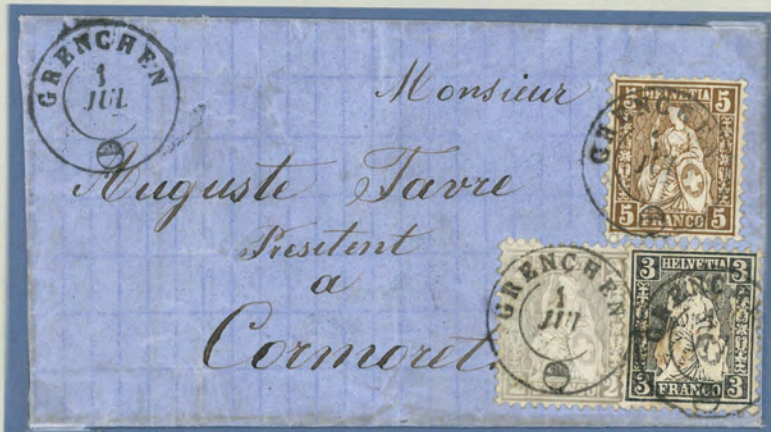 GRENCHEN
1
JUL
Monsieur
Auguste Favre
Presitent
a
Cormoret.
5 HELVETIA 5
GRENCHE
1
5 FRANCO 5
GRENCHEN
1
JUL
2
3 HELVETIA 3
GRENC
3 FRANCO 3